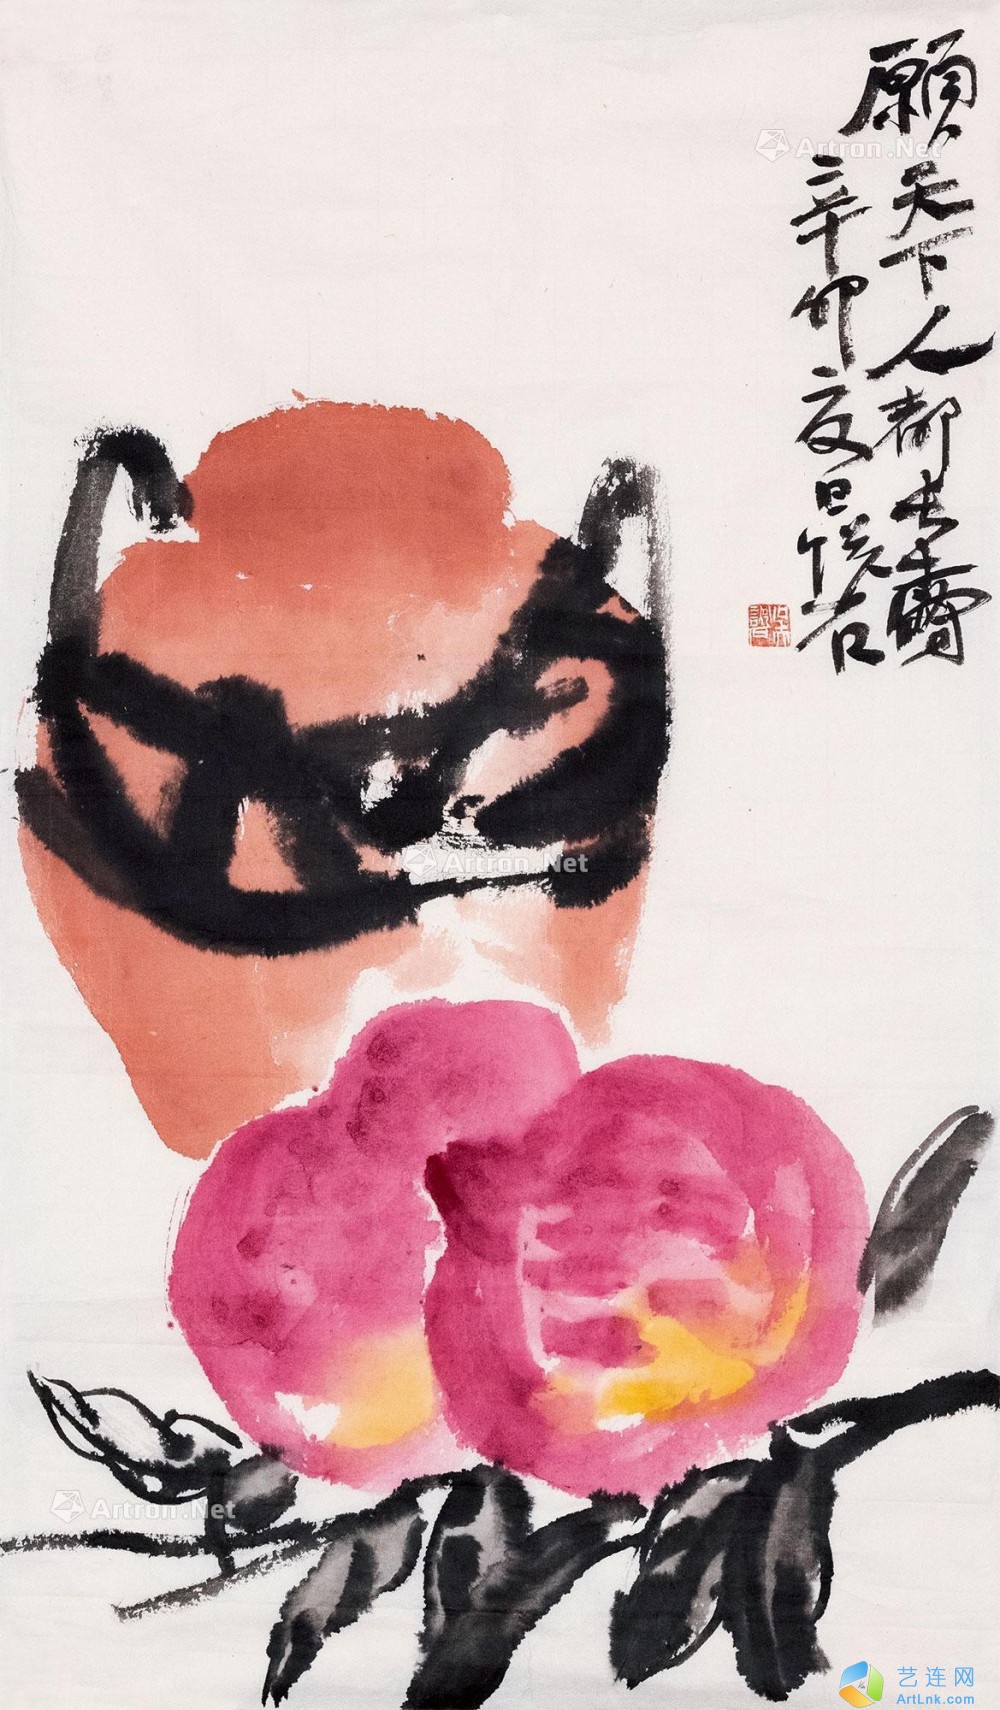 願天下人都长壽
辛卯夏日悦石
Artron.Net
Artron.Net
Artron.Net
艺连网
ArtLnk.com